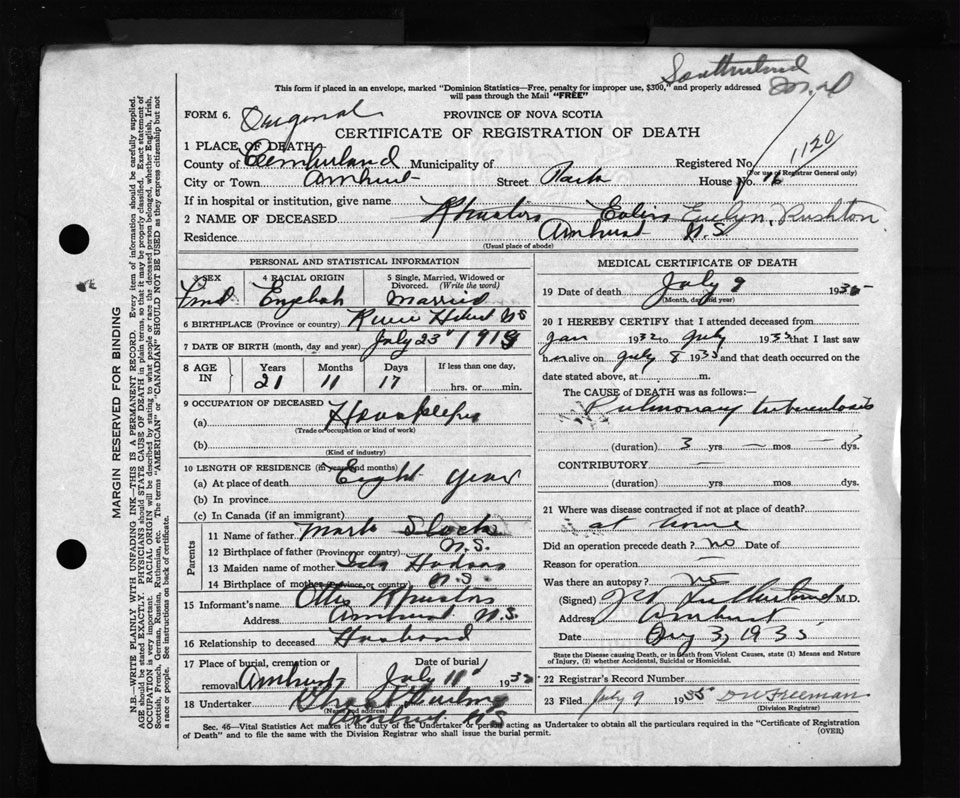 Southerland
M.D
This form if placed in an envelope, marked "Dominion Statistics—Free, penalty for improper use, $300," and properly addressed
will pass through the Mail "FREE"
FORM 6. Original PROVINCE OF NOVA SCOTIA
CERTIFICATE OF REGISTRATION OF DEATH
1 PLACE OF DEATH—
County of Cumberland Municipality of Registered No. 1120
(For use of Registrar General only)
City or Town Amherst Street Park House No. 16
If in hospital or institution, give name
2 NAME OF DECEASED Evelyn Rushton
Residence Amherst N.S.
(Usual place of abode)
PERSONAL AND STATISTICAL INFORMATION
3 SEX 4 RACIAL ORIGIN 5 Single, Married, Widowed or Divorced. (Write the word)
English Married
6 BIRTHPLACE (Province or country) River Hebert NS
7 DATE OF BIRTH (month, day and year) July 23 1913
8 AGE IN Years Months Days If less than one day,
21 11 17 hrs. or min.
9 OCCUPATION OF DECEASED
(a) Housekeeper
(Trade or occupation or kind of work)
(b)
(Kind of industry)
10 LENGTH OF RESIDENCE (in years and months)
(a) At place of death Eight year
(b) In province
(c) In Canada (if an immigrant)
Parents
11 Name of father Mark
12 Birthplace of father (Province or country) N.S.
13 Maiden name of mother
14 Birthplace of mother (Province or country) N.S.
15 Informant's name
Address Amherst N.S.
16 Relationship to deceased Husband
17 Place of burial, cremation or removal Amherst Date of burial July 11 193
18 Undertaker
(Name and address)
Amherst N.S.
MEDICAL CERTIFICATE OF DEATH
19 Date of death July 9 1935
(Month, day and year)
20 I HEREBY CERTIFY that I attended deceased from
Jan 1932 to July 1935 that I last saw
her alive on July 8 1935 and that death occurred on the
date stated above, at m.
The CAUSE OF DEATH was as follows:
Pulmonary tuberculosis
(duration) 3 yrs. — mos. — dys.
CONTRIBUTORY —
(duration) yrs. mos. dys.
21 Where was disease contracted if not at place of death?
at home
Did an operation precede death? no Date of
Reason for operation —
Was there an autopsy? no
(Signed) M.D.
Address Amherst
Date 1935
State the Disease causing Death, or in Death from Violent Causes, state (1) Means and Nature
of Injury, (2) whether Accidental, Suicidal or Homicidal.
22 Registrar's Record Number
23 Filed July 9 1935 D W Freeman
(Division Registrar)
Sec. 46—Vital Statistics Act makes it the duty of the Undertaker or person acting as Undertaker to obtain all the particulars required in the "Certificate of Registration
of Death" and to file the same with the Division Registrar who shall issue the burial permit. (OVER)
MARGIN RESERVED FOR BINDING
N.B.—WRITE PLAINLY WITH UNFADING INK—THIS IS A PERMANENT RECORD. Every item of information should be carefully supplied.
AGE should be stated EXACTLY. PHYSICIANS should STATE CAUSE OF DEATH in plain terms, so that it may be properly classified. Exact statement of
OCCUPATION is very important. RACIAL ORIGIN will be described by stating to what people or race the deceased person belonged, whether English, Irish,
Scottish, French, German, Russian, Ruthenian, etc. The terms "AMERICAN" or "CANADIAN" SHOULD NOT BE USED as they express citizenship but not
a race or people. See instructions on back of certificate.